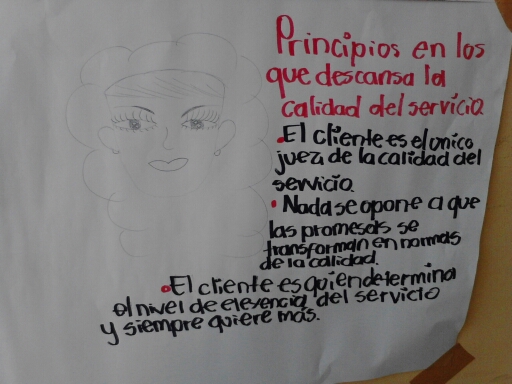 Principios en los
que descansa la
calidad del servicio
• El cliente es el unico
juez de la calidad del
servicio.
• Nada se opone a que
las promesas se
transforman en normas
de la calidad.
• El cliente es quien determina
el nivel de elexencia del servicio
y siempre quiere más.